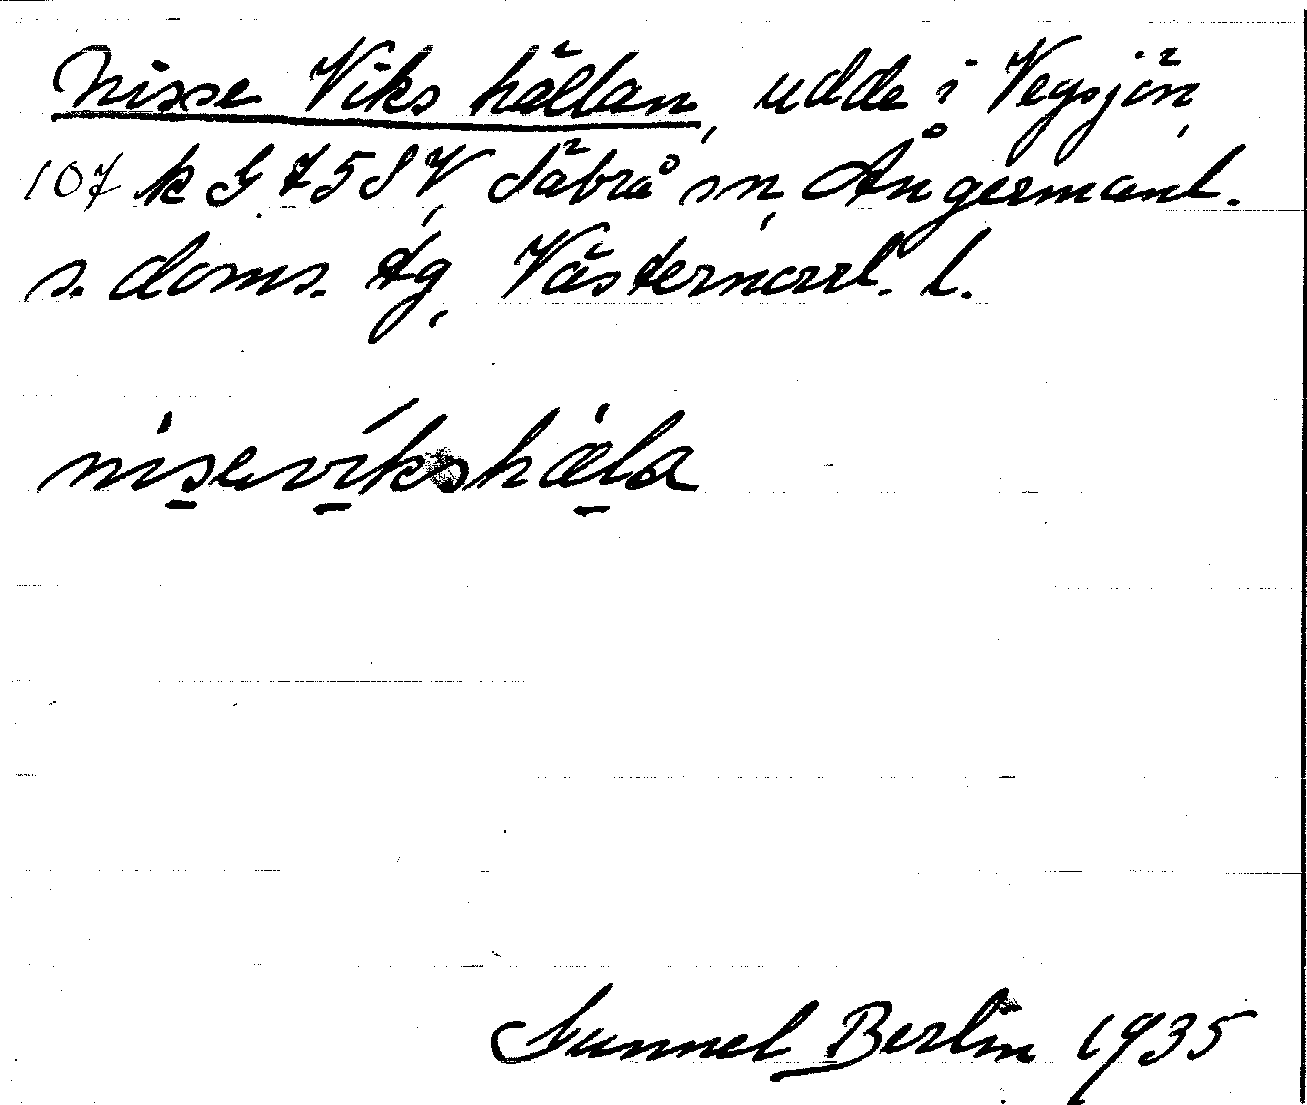 Nisse Viks hällan, udde i Vegsjön,
107 k G 75 SV, Säbrå sn, Ångermanl.
s. doms. tg, Västernorrl. l.
nisevikshæla
Gunnel Berlin 1935